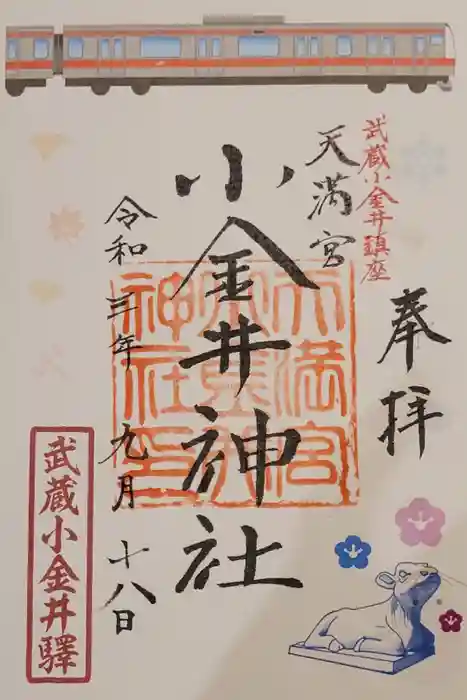 武蔵小金井鎮座
奉拝
天満宮
小金井神社
令和三年九月十八日
武蔵小金井驛